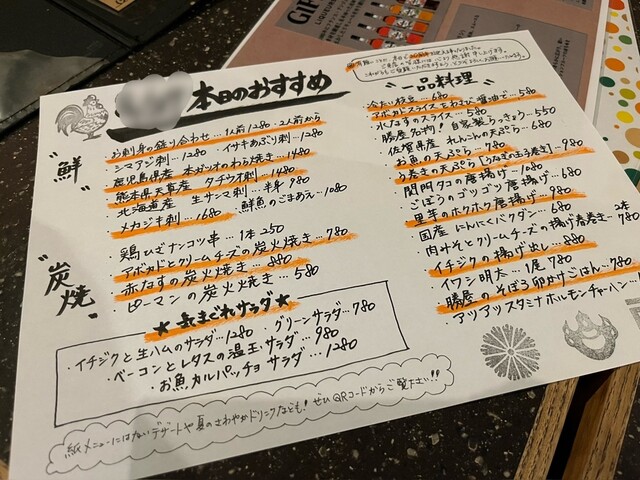 本日のおすすめ
"鮮"
お刺身の盛り合わせ…1人前1280・2人前から
・シマアジ刺…1280 ・イサキあぶり刺…1180
鹿児島県産 本ガツオのわら焼き…1480
熊本県天草産 タチウオ刺…1480
・北海道産 生サンマ刺…半身980
メカジキ刺…1680 ・鮮魚のごまあえ…1080
"炭焼"
・鶏ひざナンコツ串…1本250
・アボカドとクリームチーズの炭火焼き…780
・赤なすの炭火焼き…880
・ピーマンの炭火焼き…580
★気まぐれサラダ★
・イチジクと生ハムのサラダ…1280 ・グリーンサラダ…780
・ベーコンとレタスの温玉サラダ…980
・お魚カルパッチョサラダ…1280
紙メニューにはないデザートや夏のさわやかドリンクなども!ぜひQRコードからご覧下さい!!
"一品料理"
・冷たい枝豆…680
アボカドスライスをわさび醤油で…580
・水なすのスライス…580
・勝屋名物!自家製らっきょう…550
・佐賀県産 れんこんの天ぷら…680
お魚の天ぷら…780
う巻きの天ぷら[うなぎの玉子巻き]…980
・関門タコの唐揚げ…1080
・ごぼうのゴツゴツ唐揚げ…680
里芋のホクホク唐揚げ…980
・国産にんにくバクダン…680
・肉みそとクリームチーズの揚げ春巻き…2本780
イチジクの揚げ出し…880
・イワシ明太…1尾780
勝屋のそぼろ卵かけごはん…780
・アツアツスタミナホルモンチャーハン…